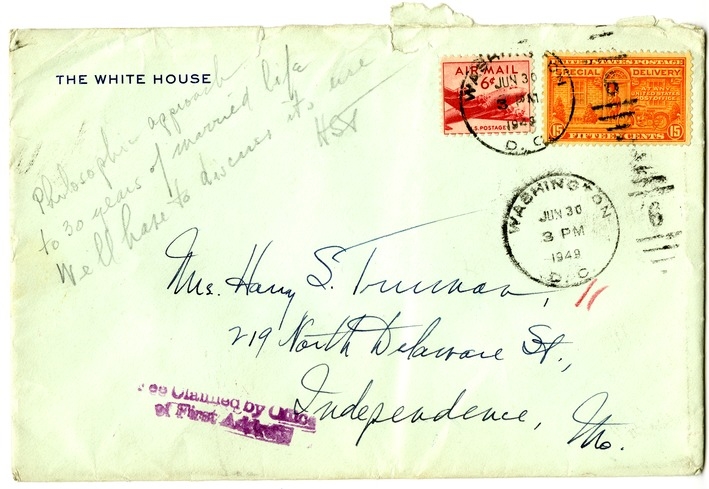 THE WHITE HOUSE
Philosophic approach
to 30 years of married life
We'll have to discuss its use
HST
AIR MAIL
6¢
U.S. POSTAGE
UNITED STATES POSTAGE
SPECIAL DELIVERY
AT ANY
UNITED STATES
POST OFFICE
15 FIFTEEN CENTS 15
WASHINGTON
JUN 30
3 PM
1949
D. C.
WASHINGTON
JUN 30
3 PM
1949
D. C.
6
Mrs. Harry S. Truman,
219 North Delaware St.,
Independence,
Mo.
Fee Claimed by Office
of First Address